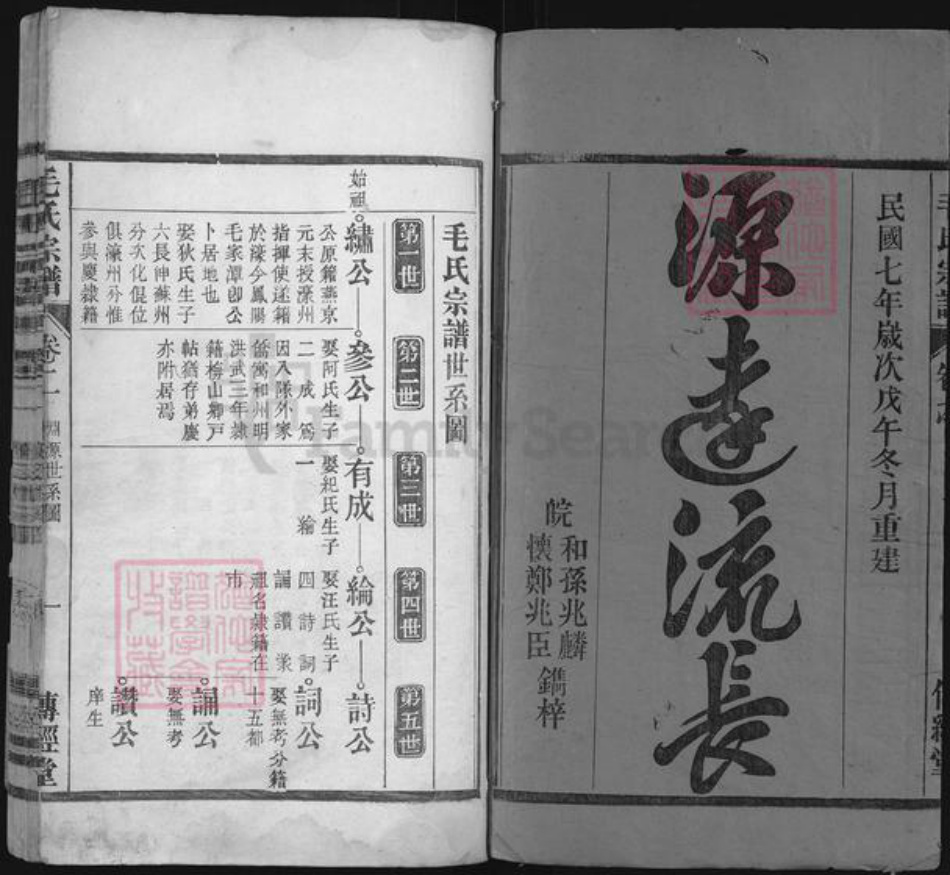 民國七年歲次戊午冬月重建
源遠流長
皖
和孫兆麟
懷鄭兆臣
鐫梓
毛氏宗譜世系圖
第一世
第二世
第三世
第四世
第五世
始祖
繡公
參公
有成
綸公
詩公
公原籍燕京
元末授濠州
指揮使遂籍
於濠今鳳陽
毛家潭卽公
卜居地也
娶狄氏生子
六長神蘇州
分次化倪位
俱濠州分惟
參與慶隸籍
娶阿氏生子
二 成 爲
因入隊外家
僑寓和州明
洪武三年隸
籍梅山鄉戶
帖猶存弟慶
亦附居焉
娶紀氏生子
一 綸
娶汪氏生子
四 詩 詞
誦 讚 業
祖名隸籍在
市
詞公
娶無考分籍
十五都
誦公
娶無考
讚公
庠生
毛氏宗譜
卷二
淵源世系圖
一
傳經堂
FamilySearch